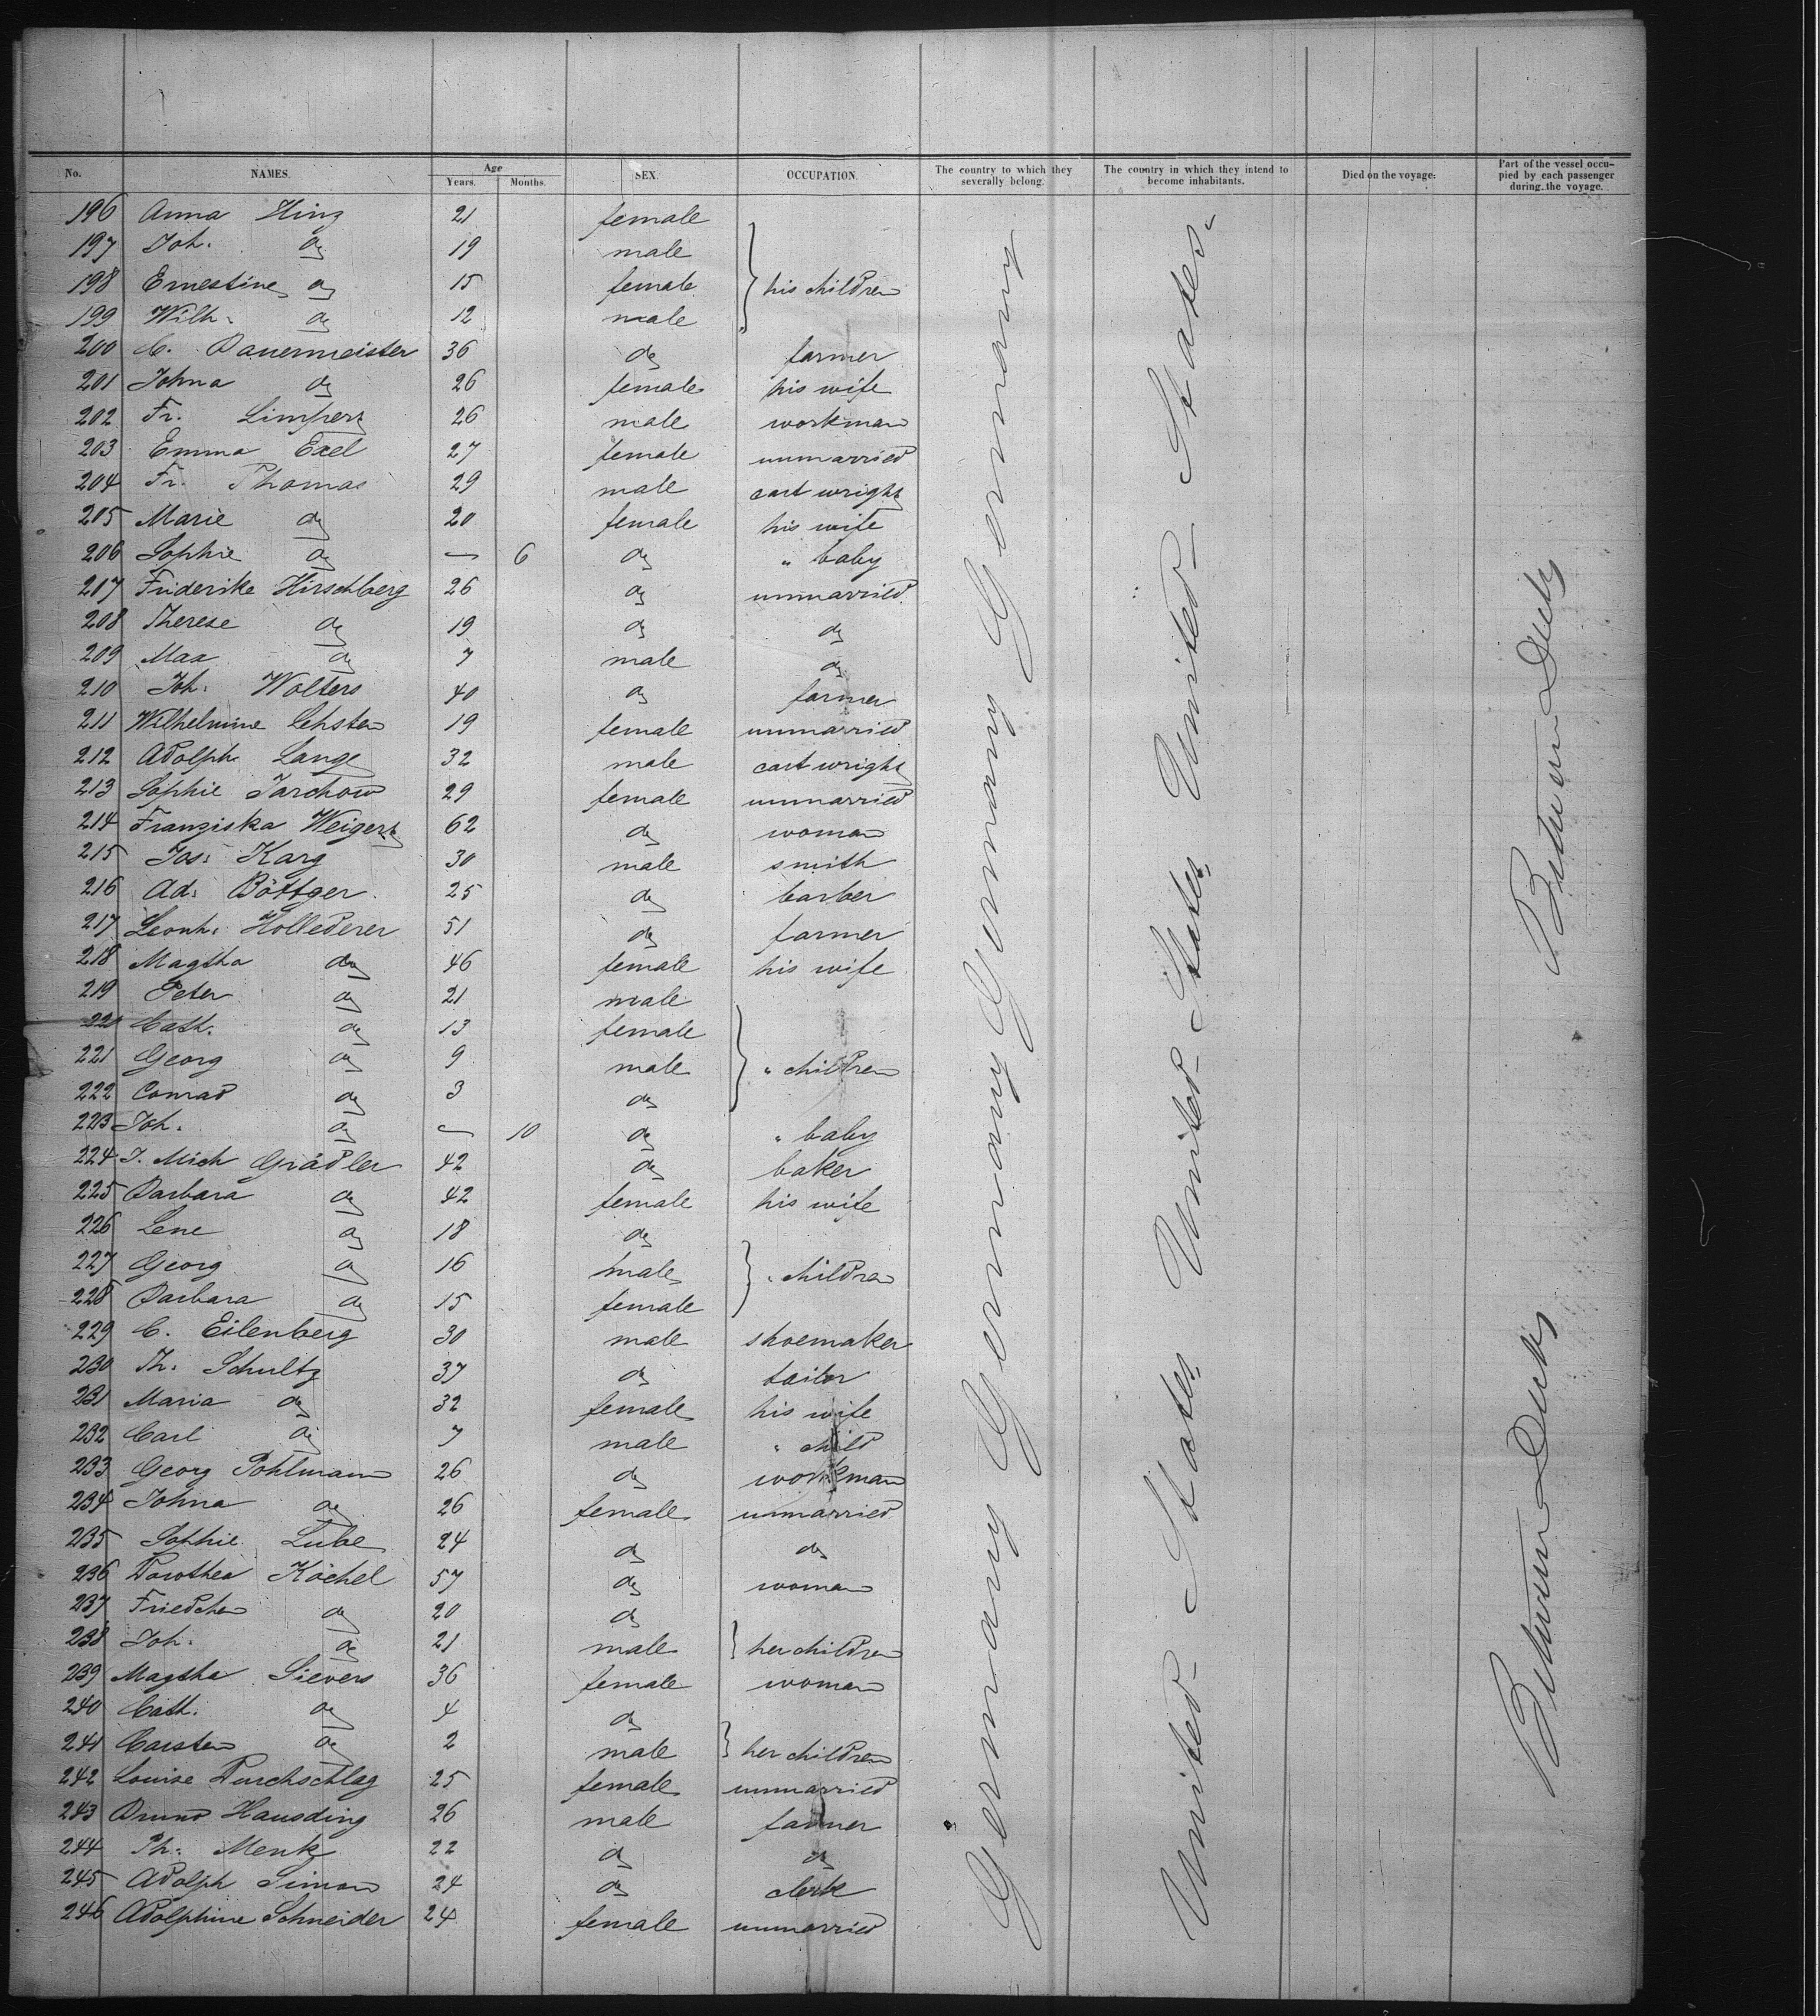 No. NAMES. Age Years. Months. SEX. OCCUPATION. The country to which they severally belong. The country in which they intend to become inhabitants. Died on the voyage: Part of the vessel occupied by each passenger during the voyage.
196 Anna Hinz 21 female
197 Joh. do 19 male
198 Ernestine do 15 female } his children
199 Wilh. do 12 male
200 C. Bauermeister 36 do farmer
201 Johna do 26 female his wife
202 Fr. Limpert 26 male workman
203 Emma Exel 27 female unmarried
204 Fr. Thomas 29 male cart wright
205 Marie do 20 female his wife
206 Sophie do — 6 do " baby
207 Friderike Hirschberg 26 do unmarried
208 Therese do 19 do do
209 Max do 7 male do
210 Joh. Wolters 40 do farmer
211 Wilhelmine Lehsten 19 female unmarried
212 Adolph Lange 32 male cart wright
213 Sophie Jarchow 29 female unmarried
214 Franziska Weigert 62 do woman
215 Jos: Karg 30 male smith
216 Ad: Böttger 25 do barber
217 Leonh: Hollederer 51 do farmer
218 Magtha do 46 female his wife
219 Peter do 21 male
220 Cath. do 13 female
221 Georg do 9 male } " children
222 Conrad do 3 do
223 Joh. do — 10 do " baby
224 J. Mich Grädler 42 do baker
225 Barbara do 42 female his wife
226 Lene do 18 do
227 Georg do 16 male } " children
228 Barbara do 15 female
229 C. Eilenberg 30 male shoemaker
230 Th: Schultz 37 do tailor
231 Maria do 32 female his wife
232 Carl do 7 male " child
233 Georg Pohlmann 26 do workman
234 Johna do 26 female unmarried
235 Sophie Lübe 24 do do
236 Dorothea Köchel 57 do woman
237 Friedchen do 20 do
238 Joh. do 21 male } her children
239 Magtha Sievers 36 female woman
240 Cath. do 4 do
241 Carsten do 2 male } her children
242 Louise Durchschlag 25 female unmarried
243 Bruno Hausding 26 male farmer
244 Ph: Mentz 22 do do
245 Adolph Simon 24 do clerk
246 Adolphine Schneider 24 female unmarried
Germany Germany Germany Germany
United States United States United States
Between Decks Between Decks